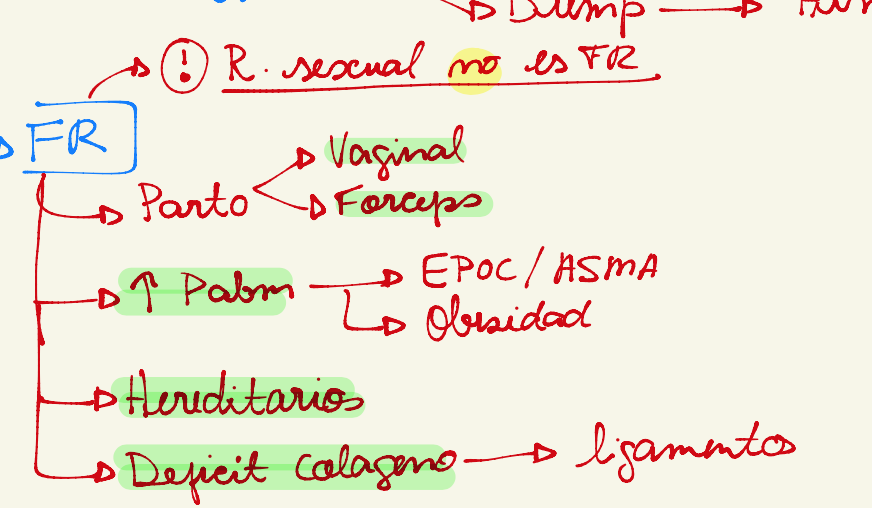 Dump
! R. sexual no es FR
FR
Vaginal
Parto
Forceps
↑ Pabm
EPOC / ASMA
Obesidad
Hereditarios
Deficit colageno
ligamentos